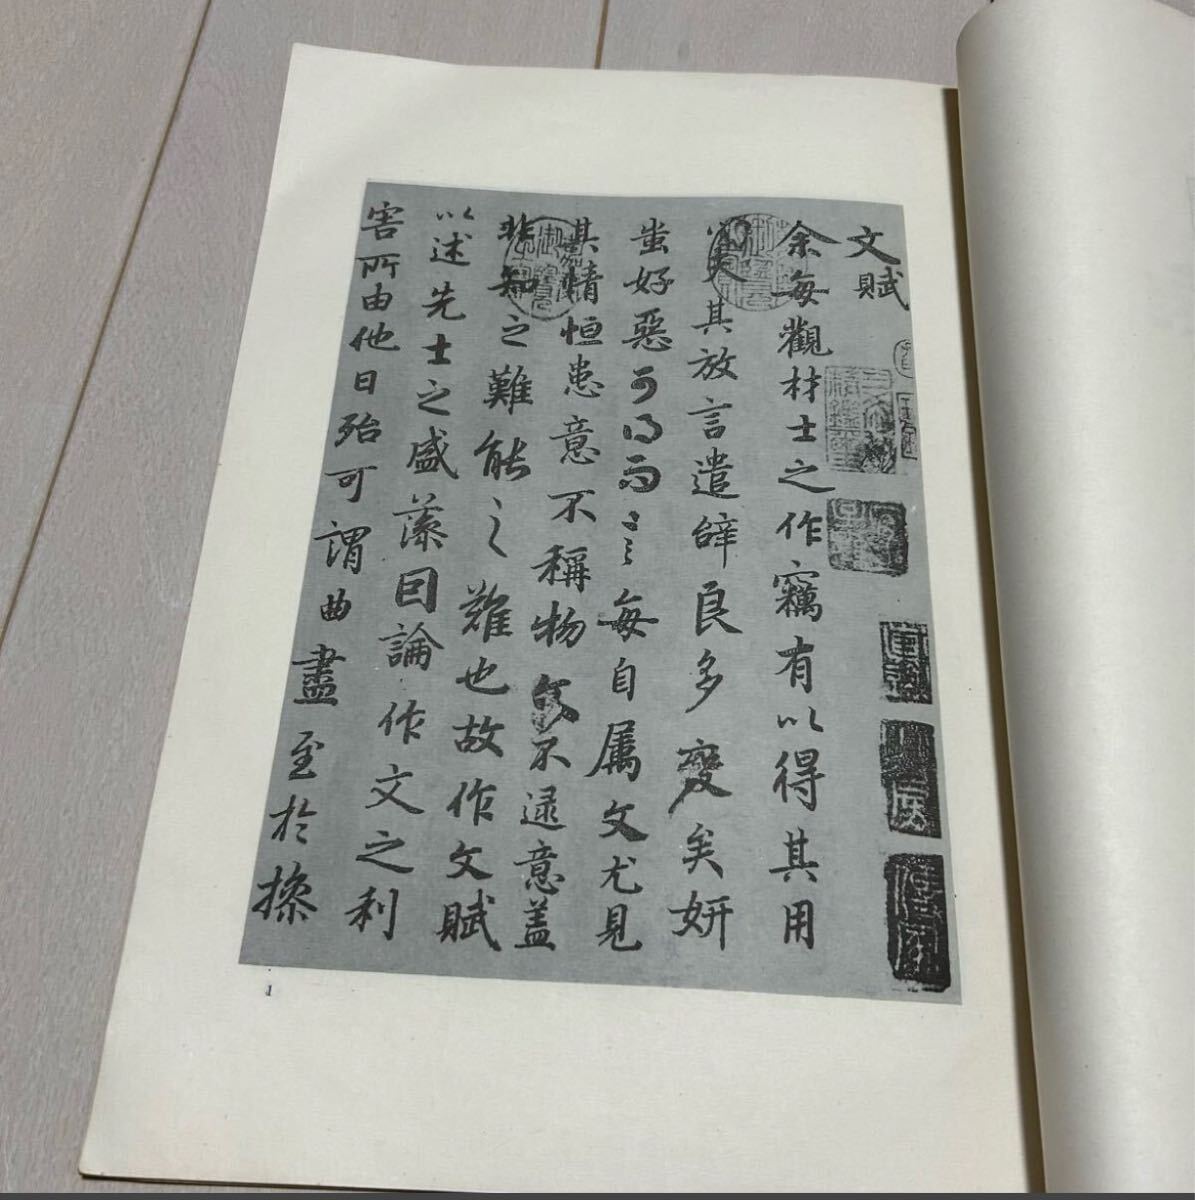 文賦
余每觀材士之作竊有以得其用
心夫其放言遣辭良多變矣妍
蚩好惡可得而言每自属文尤見
其情恒患意不稱物文不逮意盖
非知之難能之難也故作文賦
以述先士之盛藻囙論作文之利
害所由他日殆可謂曲盡至於操
1